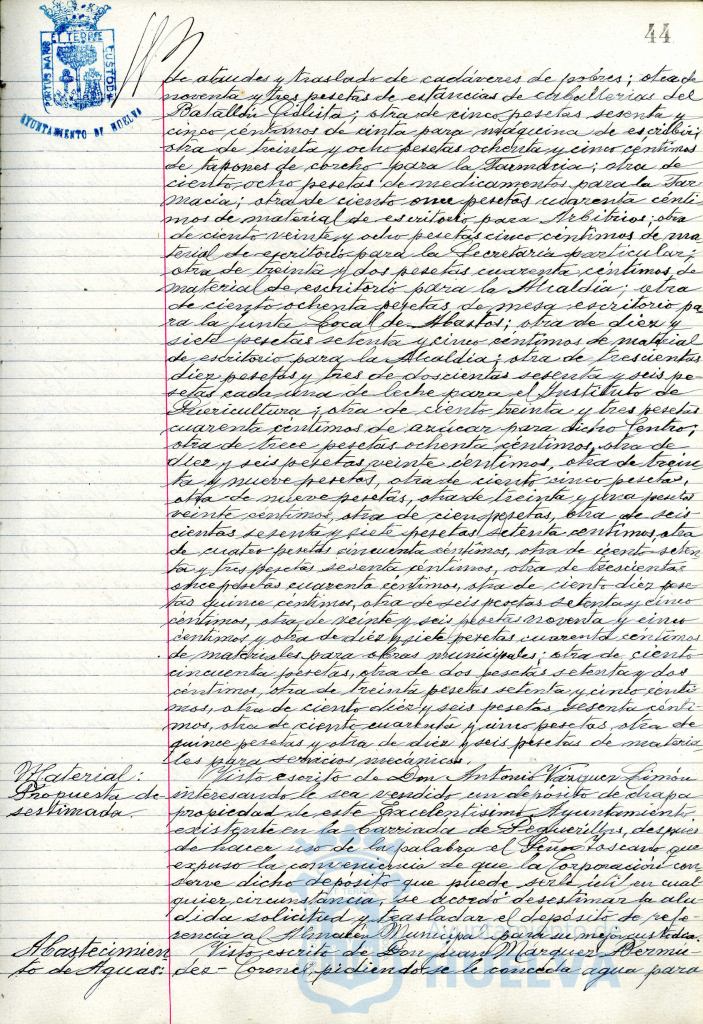 44
PORTUS MARIS ET TERRE CUSTODIA
AYUNTAMIENTO DE HUELVA
de ataudes y traslado de cadáveres de pobres; otra de
noventa y tres pesetas de estancias de caballerias del
Batallón Ciclista; otra de cinco pesetas sesenta y
cinco céntimos de cinta para máquina de escribir;
otra de treinta y ocho pesetas ochenta y cinco céntimos
de tapones de corcho para la Farmacia; otra de
ciento ocho pesetas de medicamentos para la Far
macia; otra de ciento once pesetas cuarenta cénti
mos de material de escritorio para Arbitrios; otra
de ciento veinte y ocho pesetas cinco céntimos de ma
terial de escritorio para la Secretaria particular;
otra de treinta y dos pesetas cuarenta céntimos, de
material de escritorio para la Alcaldia; otra
de ciento ochenta pesetas de mesa escritorio pa
ra la Junta Local de Abastos; otra de diez y
siete pesetas setenta y cinco céntimos de material
de escritorio para la Alcaldia; otra de trescientas
diez pesetas y tres de doscientas sesenta y seis pe-
setas cada una de leche para el Instituto de
Puericultura; otra de ciento treinta y tres pesetas
cuarenta céntimos de azúcar para dicho Centro;
otra de trece pesetas ochenta céntimos, otra de
diez y seis pesetas veinte céntimos, otra de trein
ta y nueve pesetas, otra de ciento cinco pesetas,
otra de nueve pesetas, otra de treinta y una pesetas
veinte céntimos, otra de cien pesetas, otra de seis
cientas sesenta y siete pesetas setenta céntimos, otra
de cuatro pesetas cincuenta céntimos, otra de ciento seten
ta y tres pesetas sesenta céntimos, otra de trescientas
once pesetas cuarenta céntimos, otra de ciento diez pese
tas quince céntimos, otra de seis pesetas setenta y cinco
céntimos, otra de veinte y seis pesetas noventa y cinco
céntimos y otra de diez y siete pesetas cuarenta céntimos
de materiales para obras municipales; otra de ciento
cincuenta pesetas, otra de dos pesetas setenta y dos
céntimos, otra de treinta pesetas setenta y cinco cénti
mos, otra de ciento diez y seis pesetas sesenta cénti
mos, otra de ciento cuarenta y cinco pesetas, otra de
quince pesetas y otra de diez y seis pesetas de materia
les para servicios mecánicos.
Material: Visto escrito de Don Antonio Vázquez Limón
Propuesta de interesando le sea vendido un depósito de chapa
sestimada. propiedad de este Excelentísimo Ayuntamiento
existente en la Barriada de Peguerillos, después
de hacer uso de la palabra el Señor Toscano que
expuso la conveniencia de que la Corporación con
serve dicho depósito que puede serle útil en cual
quier circunstancia, se acordó desestimar la alu
dida solicitud y trasladar el depósito de refe
rencia al Almacén Municipal para su mejor custodia.
Abastecimien Visto escrito de Don Juan Márquez Bermu
to de Aguas: dez-Coronel, pidiendo se le conceda agua para
Ayuntamiento de
HUELVA